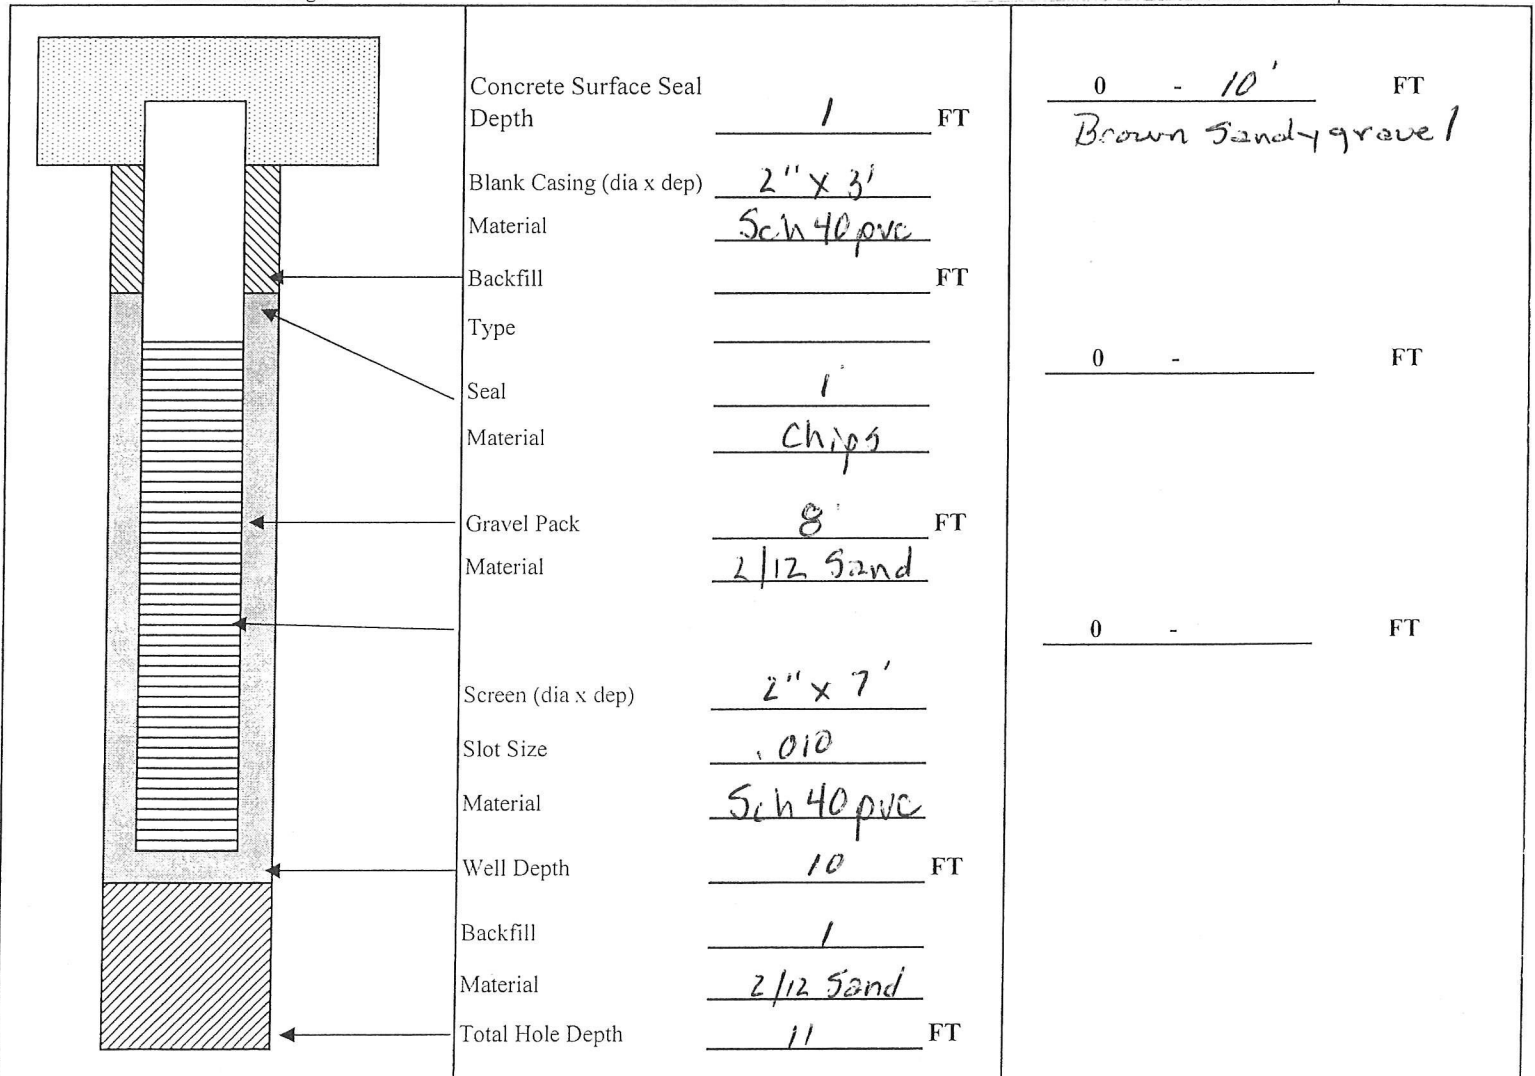 Concrete Surface Seal
Depth 1 FT
Blank Casing (dia x dep) 2" x 3'
Material Sch 40 pvc
Backfill FT
Type
Seal 1'
Material Chips
Gravel Pack 8' FT
Material 2/12 Sand
Screen (dia x dep) 2" x 7'
Slot Size .010
Material Sch 40 pvc
Well Depth 10 FT
Backfill 1
Material 2/12 Sand
Total Hole Depth 11 FT
0 - 10' FT
Brown Sandy gravel
0 - FT
0 - FT